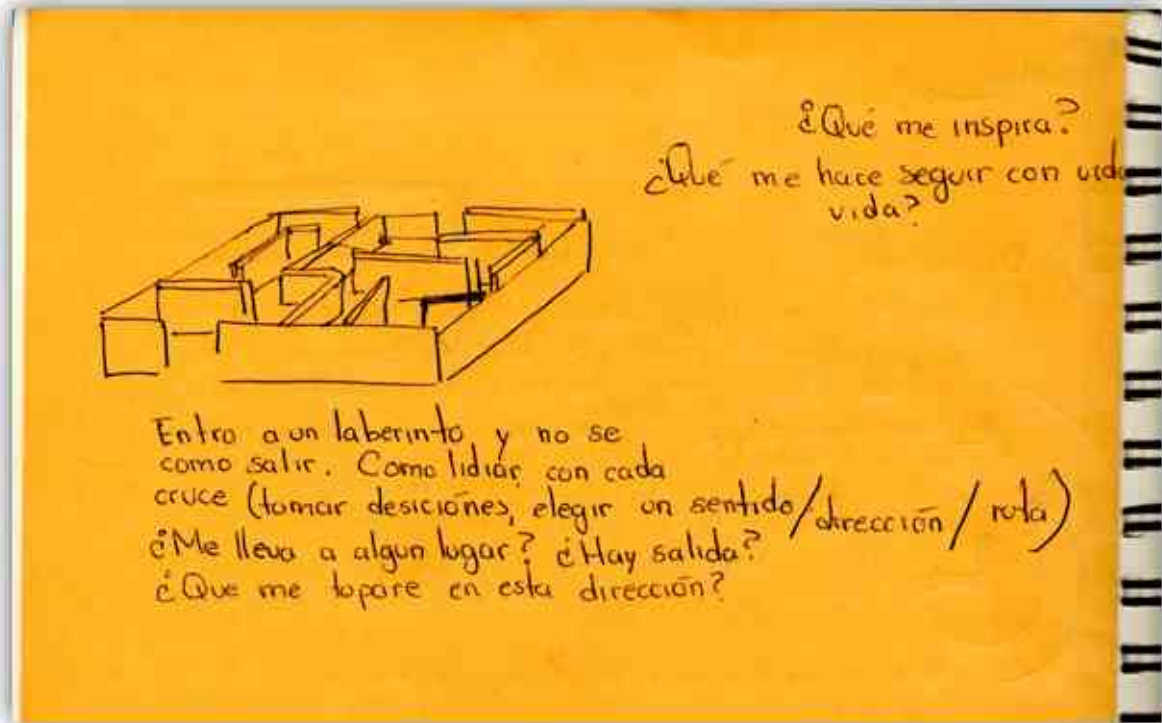 ¿Qué me inspira?
¿Qué me hace seguir con vida
vida?
Entro a un laberinto, y no se
como salir. Como lidiar con cada
cruce (tomar desiciones, elegir un sentido/dirección/ruta)
¿Me lleva a algun lugar? ¿Hay salida?
¿Que me topare en esta dirección?